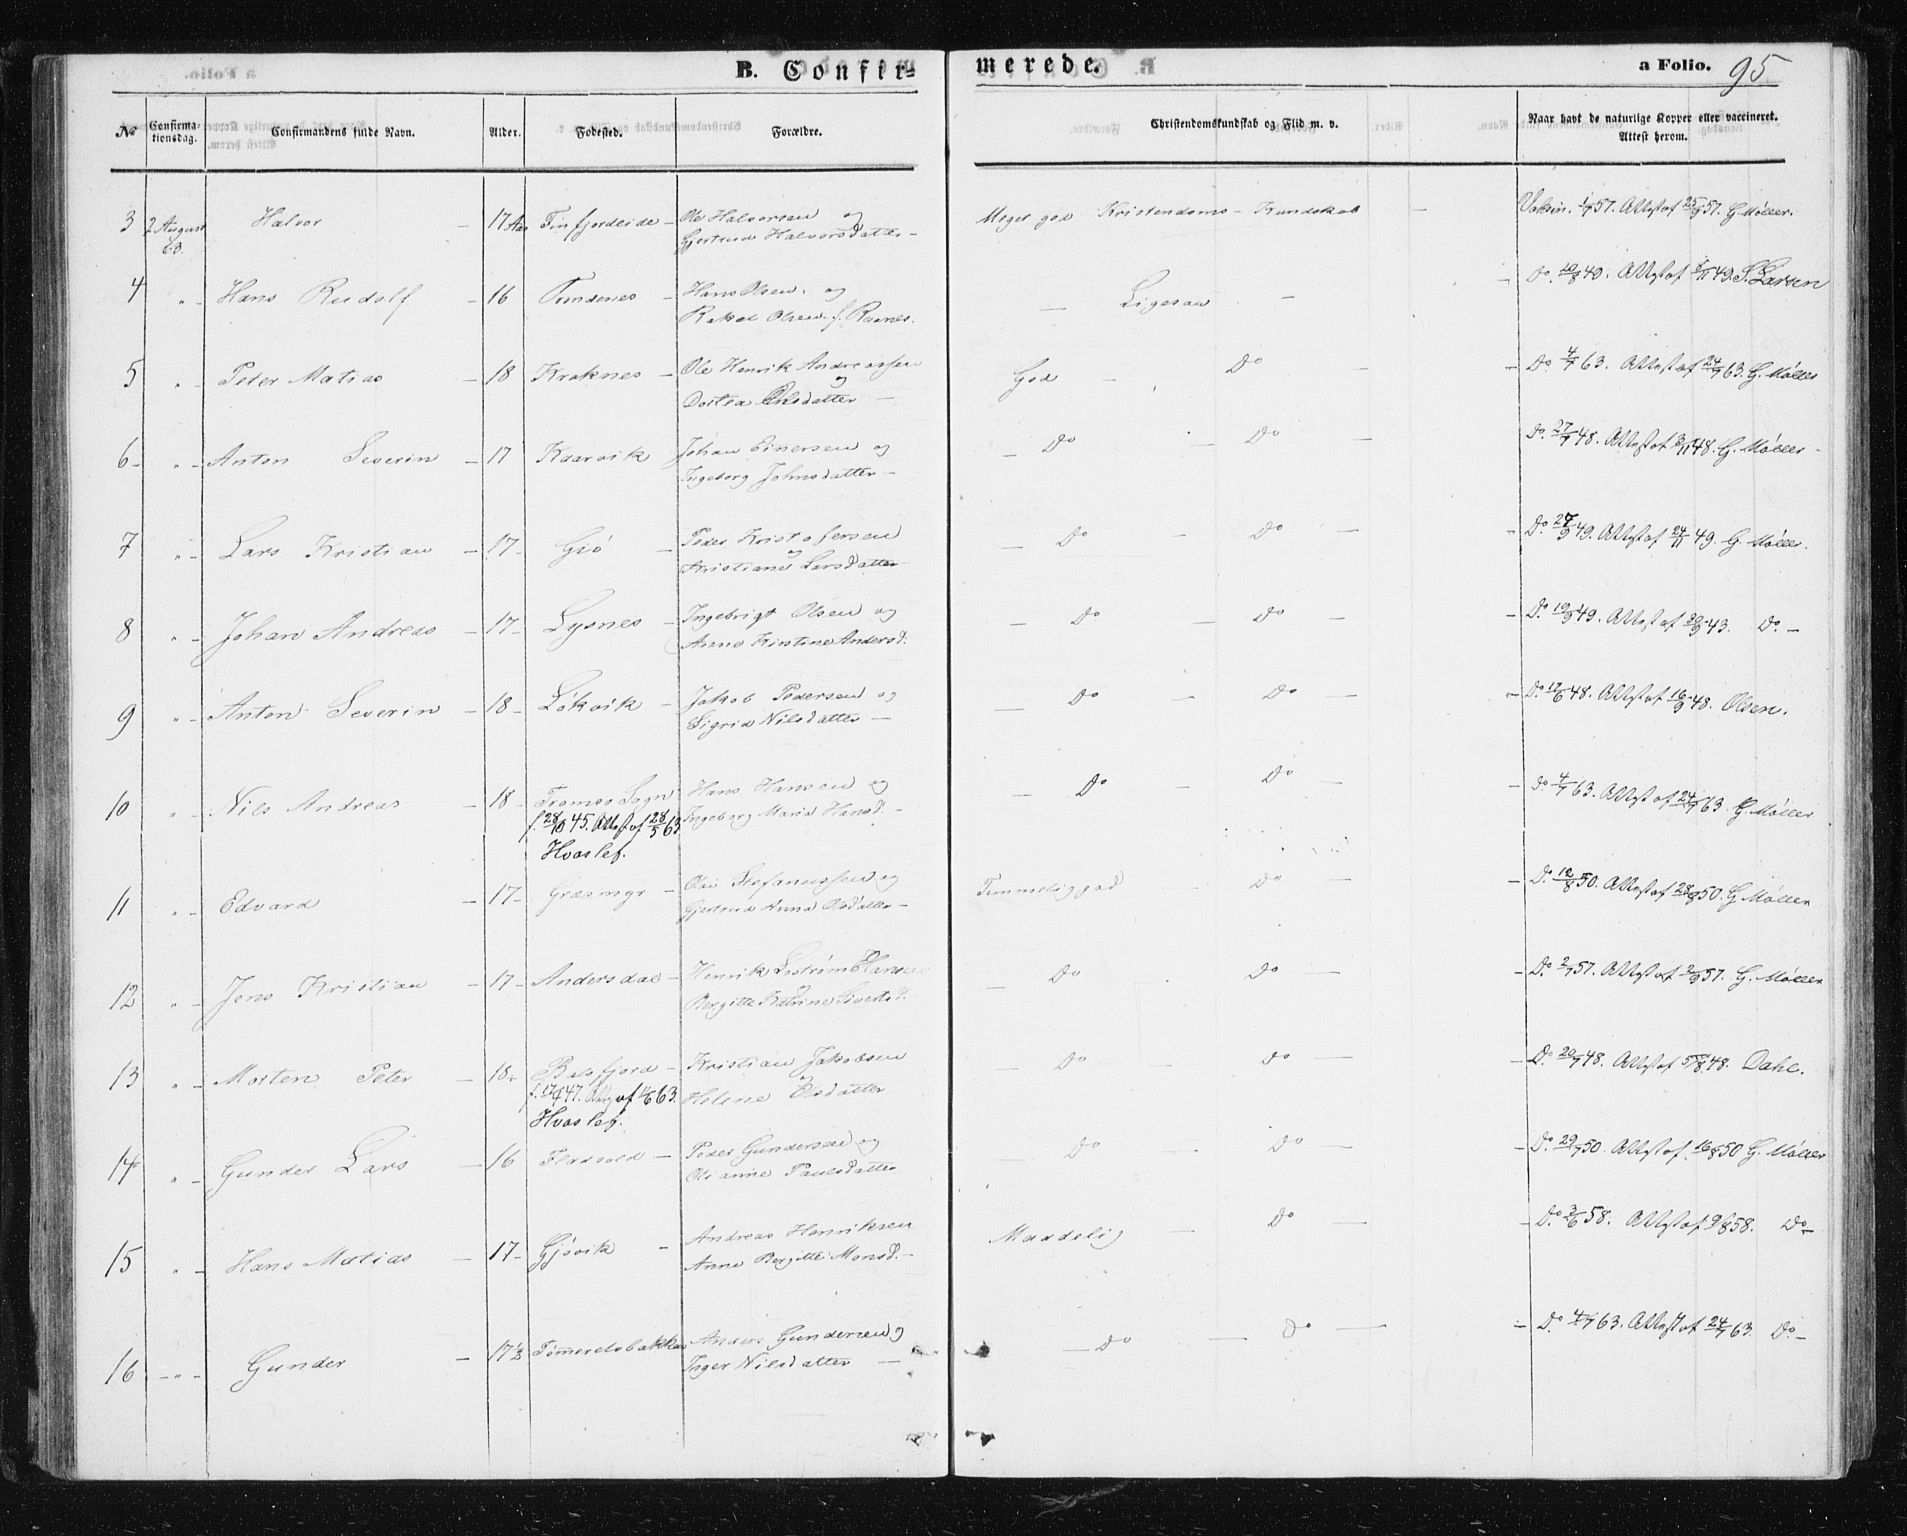 B. Confir-
merede.
a Folio. 95
No
Confirma-
tionsdag.
Confirmandens fulde Navn.
Alder.
Fødested.
Forældre.
Christendomskundskab og Flid m. v.
Naar havt de naturlige Kopper eller vaccineret.
Attest herom.
3 2 August 63. Halvor - 17 Aar Finfjordeide - Ole Halvorsen og
Gjertrud Halvorsdatter -
Meget god Kristendoms-Kundskab - Vaksin. 1/7 57. Attest af 25/9 57. G. Møller.
4 " - Hans Rudolf - 16 Hans Olsen og
Rakel Olsen f.
- Ligesaa - - Do. 10/8 49. Attest af 49. S. Larsen
5 " - Peter Matias - 18 Kraknes - Ole Henrik Andreassen
og
Dortea Olsdatter -
God - Do - - Do. 4/7 63. Attest af 24/7 63. G. Møller
6 - " - Anton Severin - 17 Kaarvik Johan Einersen og
Ingeborg Johnsdatter -
- Do - Do - Do. 27/7 48. Attest af 48. G. Møller -
7 " - Lars Kristian - 17 - Giø - Peder Kristofersen
og
Kristiane Larsdatter
- Do - Do - Do. 27/9 49. Attest af 24/11 49. G. Møller.
8 " - Johan Andreas - 17 - Lysnes - Ingebrigt Olsen og
Anne Kirstine Andersd.
- Do - Do - - Do. 10/9 49. Attest af 43. Do. -
9 " - Anton Severin - 18 - Løkvik - Jakob Pedersen og
Sigrid Nilsdatter -
- Do - Do - - Do. 17/6 48. Attest af 16/9 48. Olsen.
10 " - Nils Andreas - 18 - Tromsø Sogn Hans Hansen og
f. 28/10 45. Attest af 28/5 63. Ingeborg Maria Hansd. -
Hvoslef.
- Do - Do - - Do 4/7 63. Attest af 24/7 63 G. Møller
11 " - Edvard - 17 - Græsmyr - Olai Stefanussen og
Gjertrud Anna Olsdatter -
Temmelig god - Do - - Do. 12/8 50. Attest af 50. G. Møller
12 " - Jens Kristian - 17 - Andersdal - Henrik Hansen
Bergitte Katrine Sivertsd.
- Do - Do - - Do. 2/7 57. Attest af 2/9 57. G. Møller
13 " - Morten Peter - 18 - Balsfjord - Kristian Jakobsen
og
f. 47. Attest af 63. Helene Olsdatter
Hvoslef.
- Do - Do - - Do. 20/7 48. Attest af 5/8 48. Dahl.
14 " - Gunder Lars - 16 - Peder Gundersen og
Olianne Paulsdatter
- Do - Do - - Do. 29/7 50. Attest af 16/8 50 G. Møller
15 " - Hans Matias - 17 - Gjøvik - Andreas Henriksen
Anne Bergitte Monsd. -
Maadelig - Do - - Do. 3/6 58. Attest af 9/8 58. Do -
16 - " - Gunder - 17 ½ Tømmeelvbakken Anders Gundersen og
Inger Nilsdatter -
- Do - Do - - Do. 4/7 63. Attest af 24/7 63. Do. -